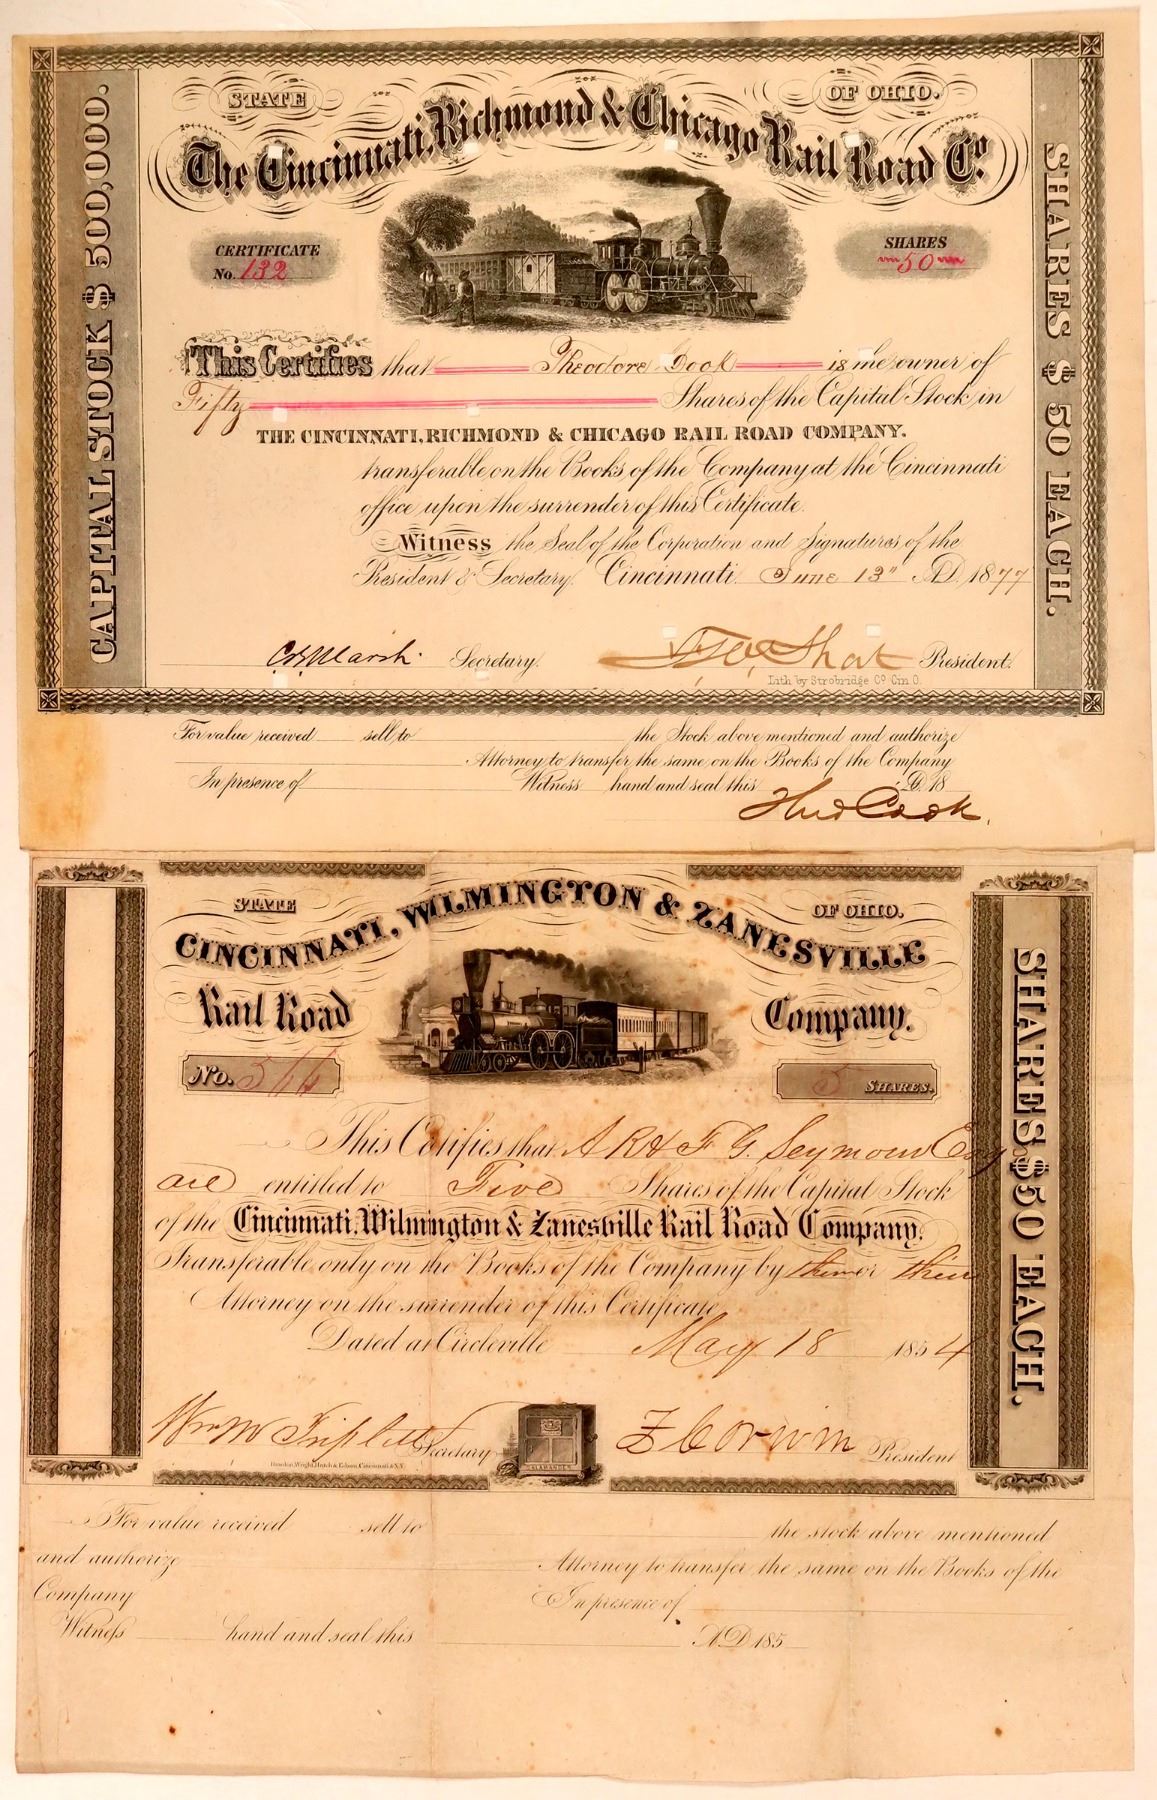 STATE OF OHIO.
The Cincinnati, Richmond & Chicago Rail Road Co.
CAPITAL STOCK $500,000.
SHARES $50 EACH.
CERTIFICATE
No. 132
SHARES
50
This Certifies that Theodore Cook is the owner of
Fifty Shares of the Capital Stock in
THE CINCINNATI, RICHMOND & CHICAGO RAIL ROAD COMPANY.
transferable on the Books of the Company at the Cincinnati
office upon the surrender of this Certificate.
Witness the Seal of the Corporation and Signatures of the
President & Secretary. Cincinnati June 13" A.D. 1877
Marsh Secretary. Short President.
Lith by Strobridge Co. Cin O.
For value received sell to the Stock above mentioned and authorize
Attorney to transfer the same on the Books of the Company
In presence of Witness hand and seal this D. 18
Theo Cook.
STATE OF OHIO.
CINCINNATI, WILMINGTON & ZANESVILLE
Rail Road Company.
SHARES $50 EACH.
No. 5 SHARES.
This Certifies that A R & F G. Seymour Esq
are entitled to Five Shares of the Capital Stock
of the Cincinnati, Wilmington & Zanesville Rail Road Company.
Transferable only on the Books of the Company by them or their
Attorney on the surrender of this Certificate
Dated at Circleville May 18 1854
Wm Triplett Secretary Corwin President
For value received sell to the stock above mentioned
and authorize Attorney to transfer the same on the Books of the
Company In presence of
Witness hand and seal this A.D. 185